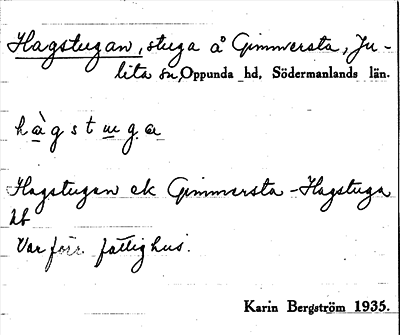 Hagstugan, stuga å Gimmersta, Ju-
lita sn, Oppunda hd, Södermanlands län.
hàgstuga
Hagstugan ek Gimmersta-Hagstuga
hb
Var förr fattighus.
Karin Bergström 1935.